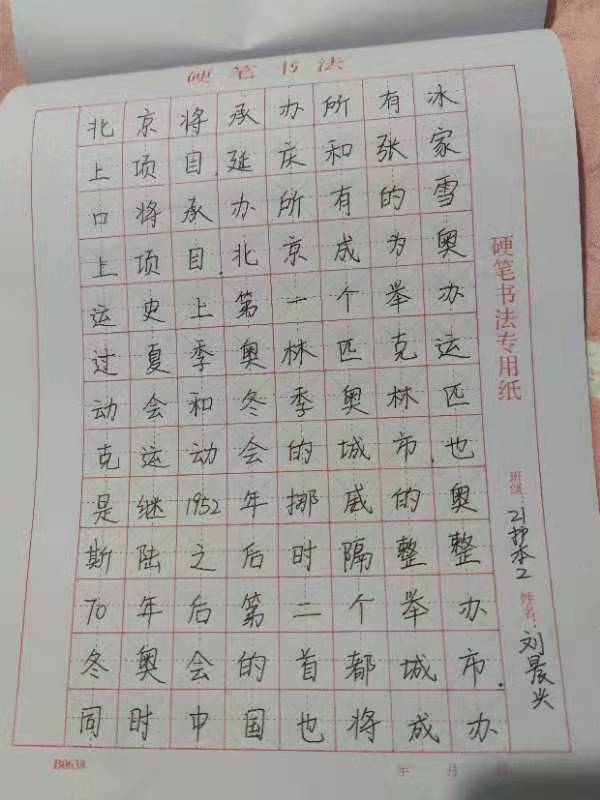 硬笔书法
北京将承办所有冰
上项目.延庆和张家
口将承办所有的雪
上项目.北京成为奥
运史上第一个举办
过夏季奥林匹克运
动会和冬季奥林匹
克运动会的城市.也
是继1952年挪威的奥
斯陆之后时隔整整
70年后第二个举办
冬奥会的首都城市.
同时中国也将成办
硬笔书法专用纸
班级:21护本2
姓名:刘晨兴
B0638
年 月 日